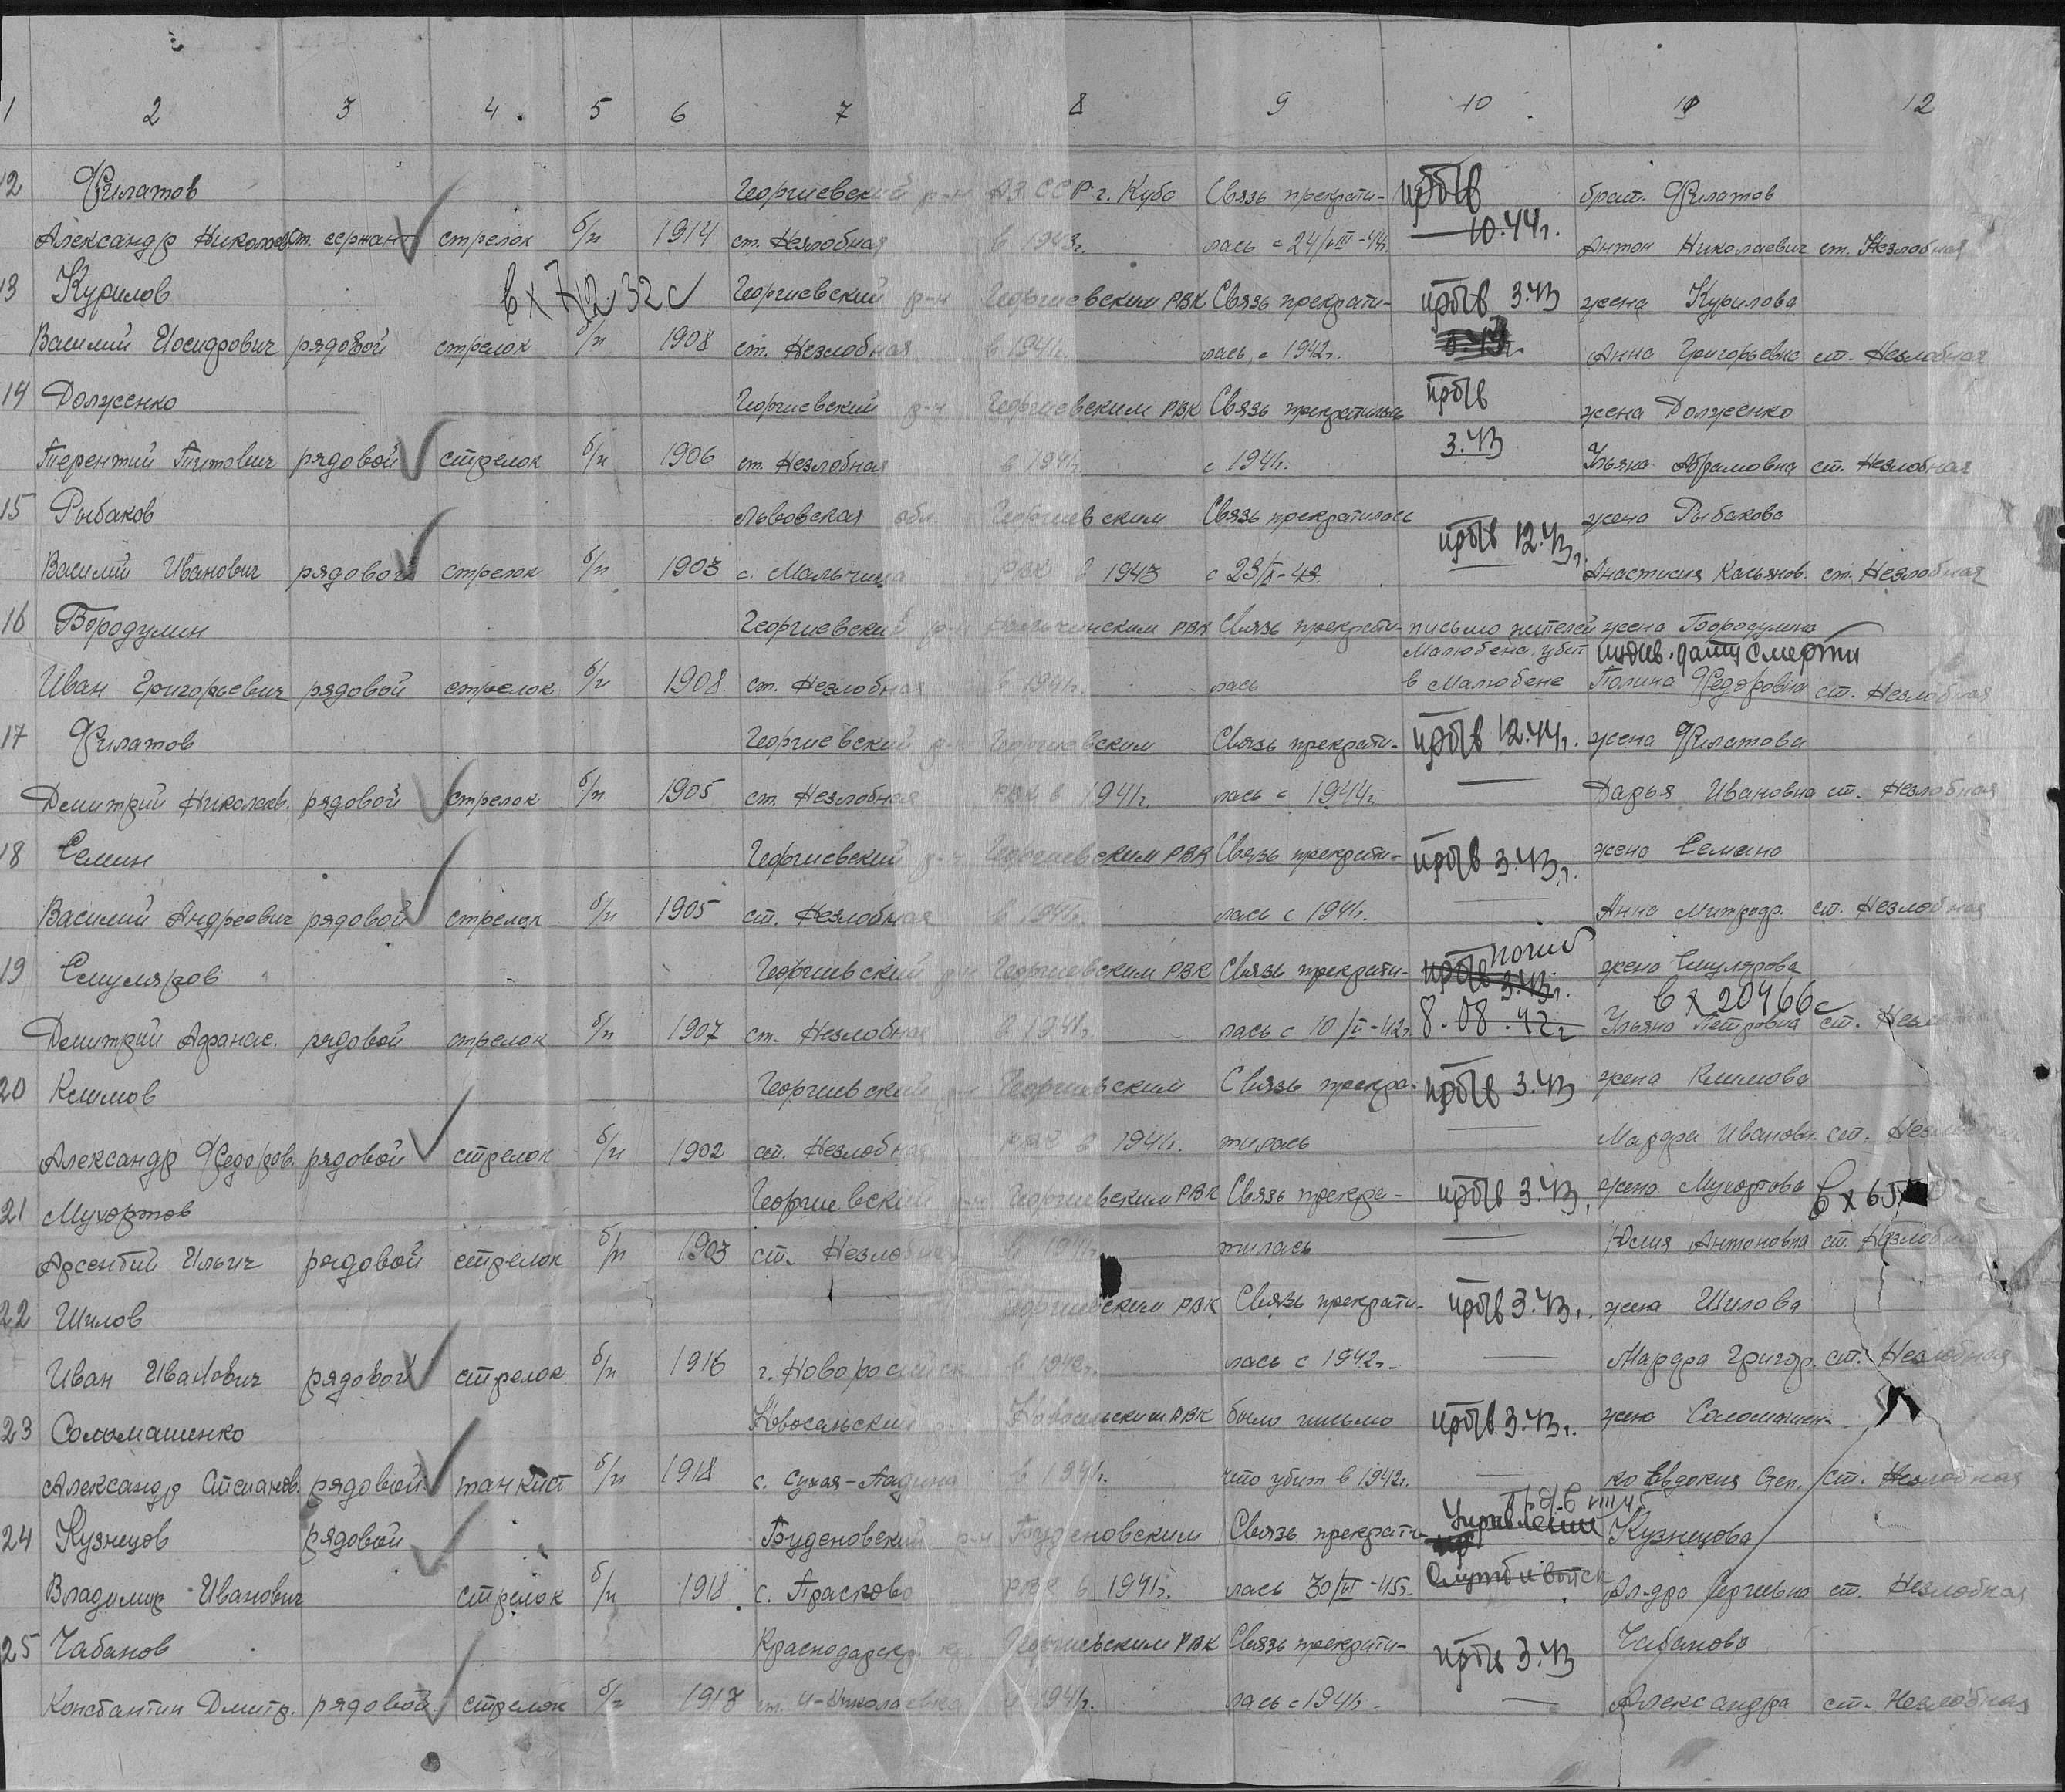 1 2 3 4 5 6 7 8 9 10 11 12
12 Филатов Георгиевский р-н АЗ ССР г. Кубо Связь прекрати- пр б/в брат. Филатов
Александр Николаев. ст. сержант стрелок б/п 1914 ст. Незлобная в 1943г. лась с 24/VIII-44г. 10.44г. Антон Николаевич ст. Незлобная
13 Курилов вх 7/2.32с Георгиевский р-н Георгиевским РВК Связь прекрати- пр б/в 3.43 жена Курилова
Василий Исидрович рядовой стрелок б/п 1908 ст. Незлобная в 1941г. лась с 1942г. Анна Григорьевна ст. Незлобная
14 Долженко Георгиевский р-н Георгиевским РВК Связь прекратилась пр б/в жена Долженко
Терентий Титович рядовой стрелок б/п 1906 ст. Незлобная в 1941г. с 1941г. 3.43 Ульяна Абрамовна ст. Незлобная
15 Рыбаков Львовская обл. Георгиевским Связь прекратилась пр б/в 12.43г. жена Рыбакова
Василий Иванович рядовой стрелок б/п 1903 с. Мальчица РВК в 1943 с 23/X-43. Анастисия Касьянов. ст. Незлобная
16 Бородулин Георгиевский р-н Нальчинским РВК Связь прекрати- письмо жителей жена Бородулина
Малюбена, убит
Иван Григорьевич рядовой стрелок б/п 1908 ст. Незлобная в 1941г. лась в Малюбене Полина Федоровна ст. Незлобная
даты смерти
17 Филатов Георгиевский р-н Георгиевским Связь прекрати- пр б/в 12.44г. жена Филатова
Дмитрий Николаев. рядовой стрелок б/п 1905 ст. Незлобная РВК в 1941г. лась с 1944г. Дарья Ивановна ст. Незлобная
18 Семин Георгиевский р-н Георгиевским РВК Связь прекрати- пр б/в 3.43г. жена Семина
Василий Андреевич рядовой стрелок б/п 1905 ст. Незлобная в 1941г. лась с 1941г. Анна Митрофр. ст. Незлобная
19 Смуляров Георгиевский р-н Георгиевским РВК Связь прекрати- пр б/в 3.43г. погиб жена Смулярова
вх 20466с
Дмитрий Афанас. рядовой стрелок б/п 1907 ст. Незлобная в 1941г. лась с 10/V-42г. 8.08.42г Ульяна Петровна ст. Незлобная
20 Климов Георгиевский р-н Георгиевским Связь прекра- пр б/в 3.43 жена Климова
Александр Федоров. рядовой стрелок б/п 1902 ст. Незлобная РВК в 1941г. тилась Марфа Ивановн. ст. Незлобная
21 Мухортов Георгиевский р-н Георгиевским РВК Связь прекра- пр б/в 3.43. жена Мухортова вх 65
Арсентий Ильич рядовой стрелок б/п 1903 ст. Незлобная в 1941г. тилась Юлия Антоновна ст. Незлобная
22 Шилов Георгиевским РВК Связь прекрати- пр б/в 3.43г. жена Шилова
Иван Иванович рядовой стрелок б/п 1916 г. Новоросийск в 1942г. лась с 1942г. Марфа Григор. ст. Незлобная
23 Соломашенко Новосельский Новосельским РВК было письмо пр б/в 3.43г. жена Соломашен-
Александр Степанов. рядовой танкист б/п 1918 с. Сухая-Падина в 1941г. что убит в 1942г. ко Евдокия Степ. ст. Незлобная
24 Кузнецов рядовой Буденовский р-н Буденовским Связь прекрати- Управлении Кузнецова
Владимир Иванович стрелок б/п 1918 с. Прасково РВК в 1941г. лась 30/VI-45г. Службы войск Ал-дра Сергиевна ст. Незлобная
25 Чабанов Краснодарск. кр. Георгиевским РВК Связь прекрати- пр б/в 3.43 Чабанова
Константин Дмитр. рядовой стрелок б/п 1917 ст. Н-Николаевка в 1941г. лась с 1941г. Александра ст. Незлобная